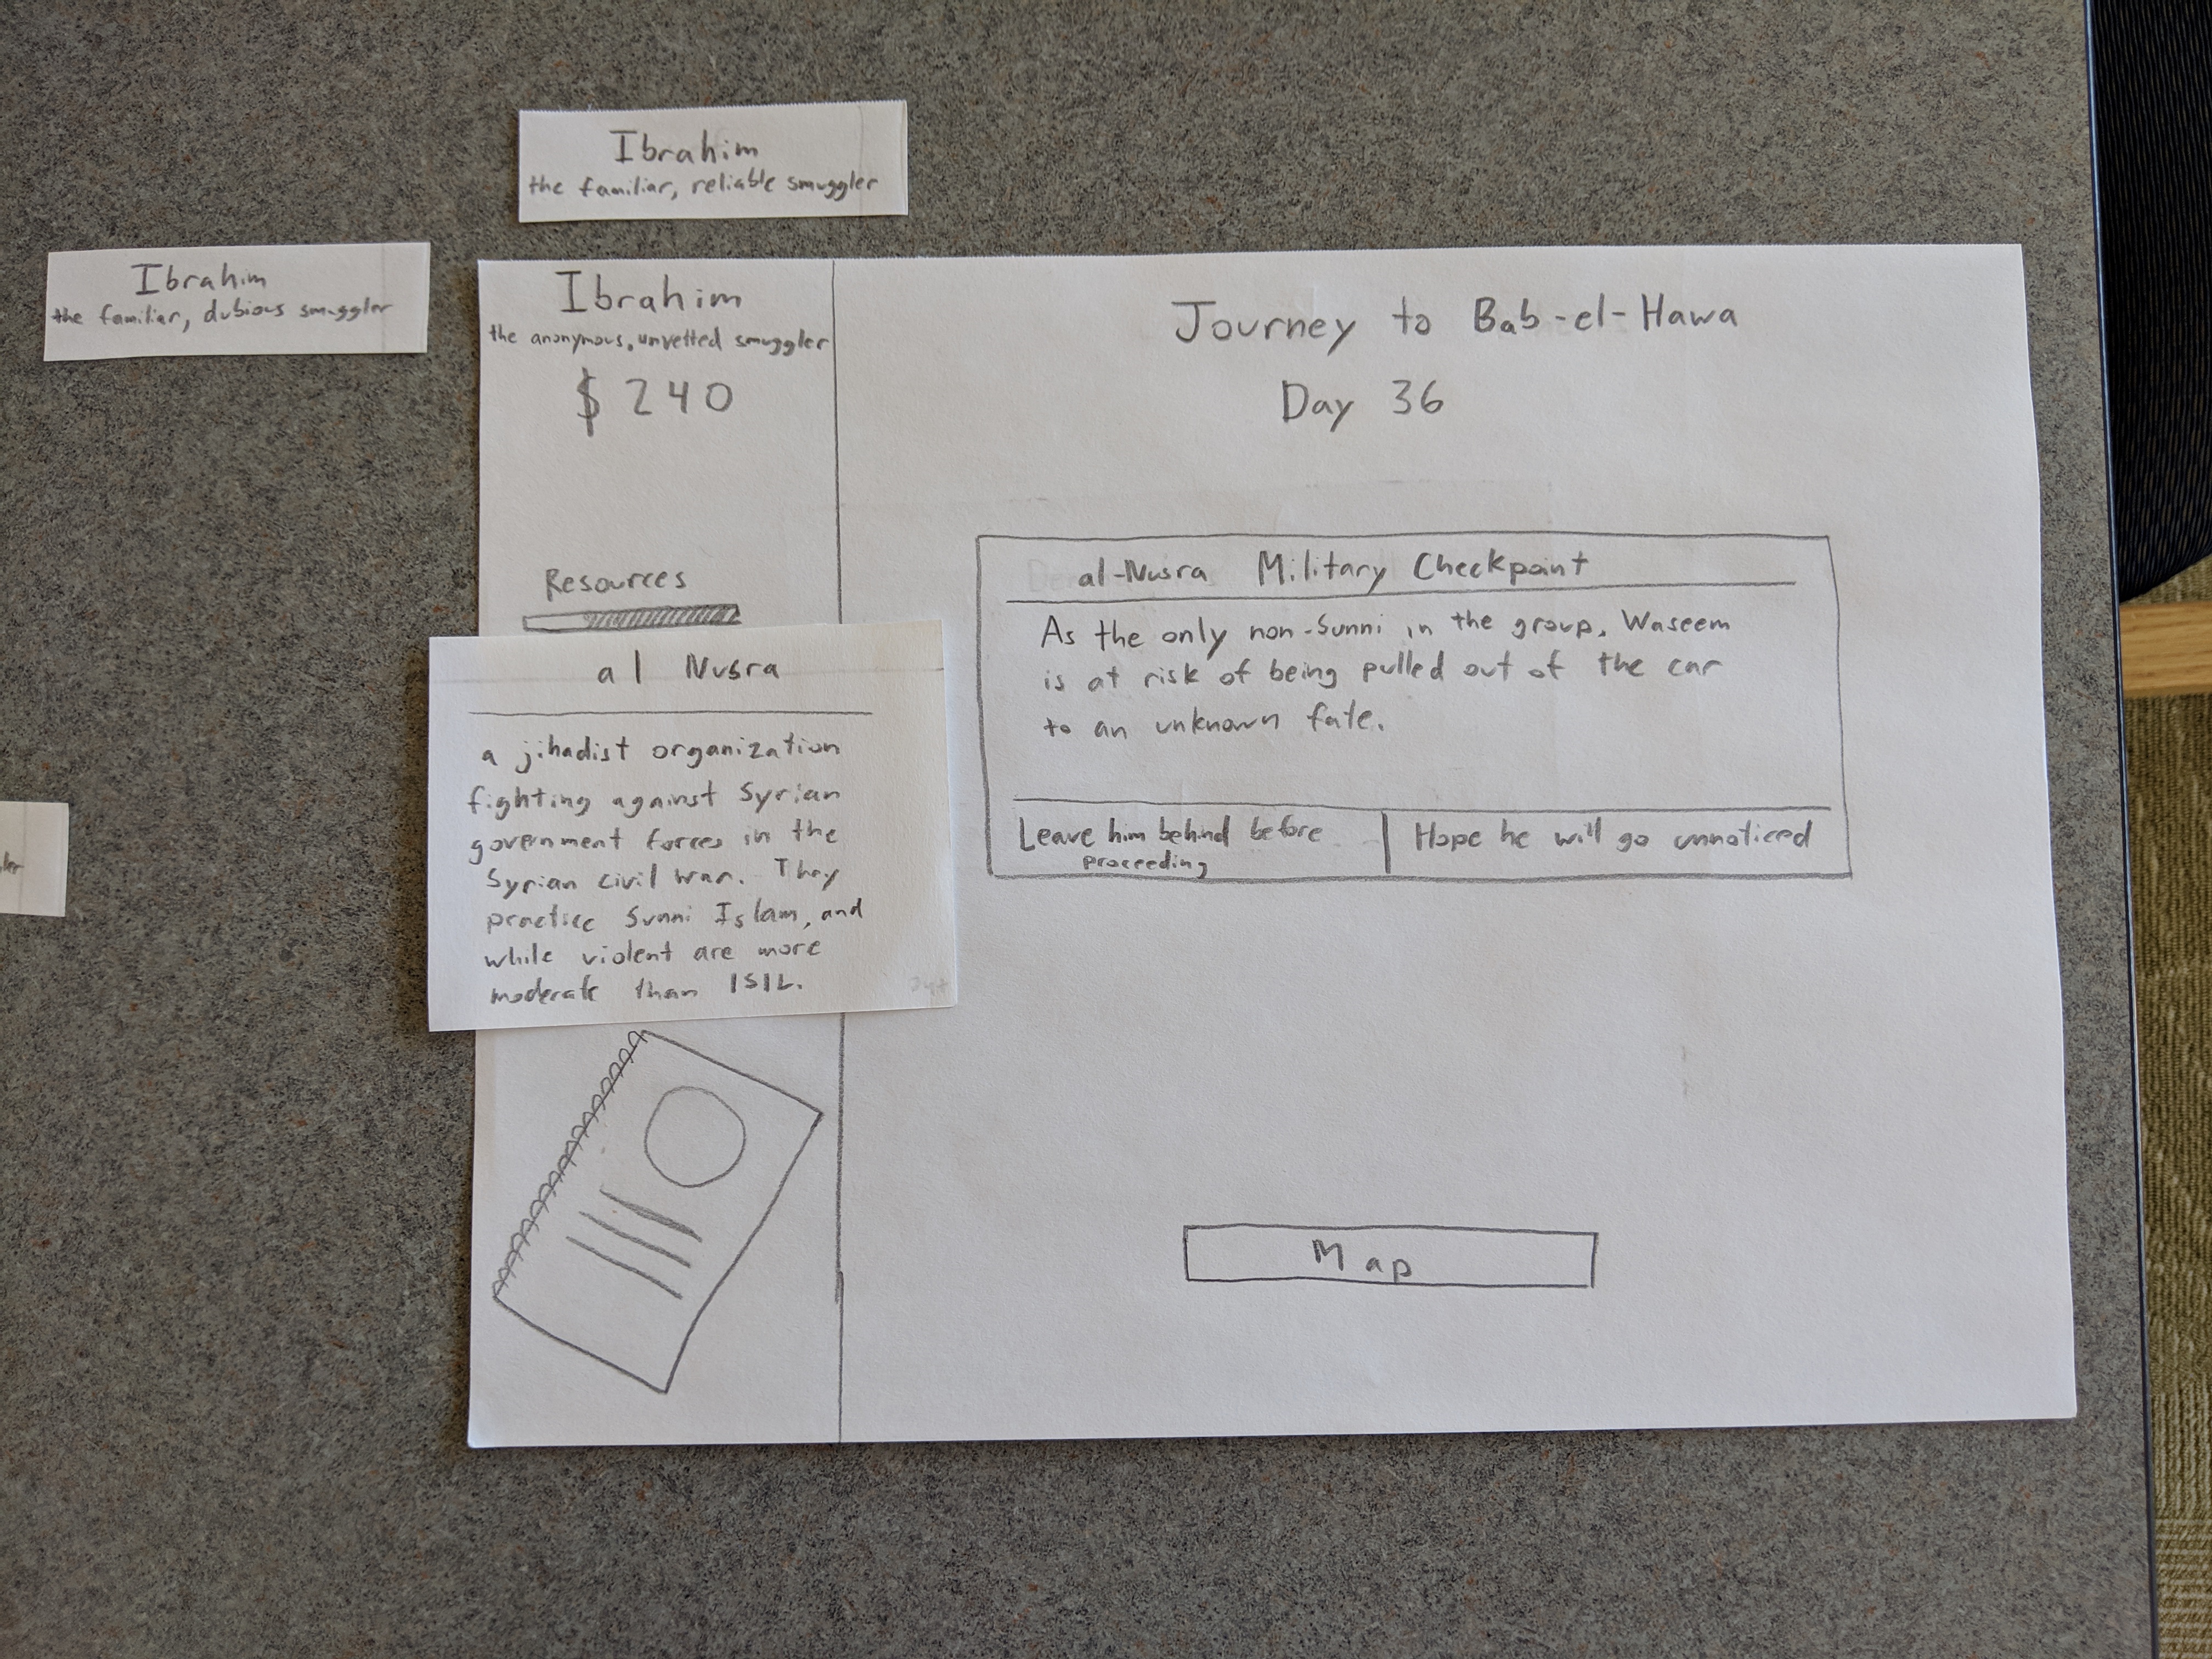 Ibrahim
the familiar, reliable smuggler
Ibrahim
the familiar, dubious smuggler
Ibrahim
the anonymous, unvetted smuggler
$ 240
Resources
al Nusra
a jihadist organization
fighting against Syrian
government forces in the
Syrian civil war. They
practice Sunni Islam, and
while violent are more
moderate than ISIL.
Journey to Bab-el-Hawa
Day 36
al-Nusra Military Checkpoint
As the only non-Sunni in the group, Waseem
is at risk of being pulled out of the car
to an unknown fate.
Leave him behind before
proceeding
Hope he will go unnoticed
Map